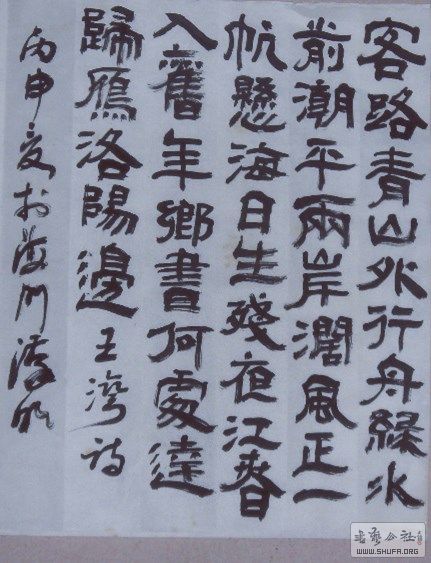 客路青山外行舟綠水
前潮平兩岸濶風正一
帆懸海日生殘夜江春
入舊年鄉書何處達
歸鴈洛陽邊王灣詩
丙申夏於海門
书艺公社
WWW.SHUFA.ORG